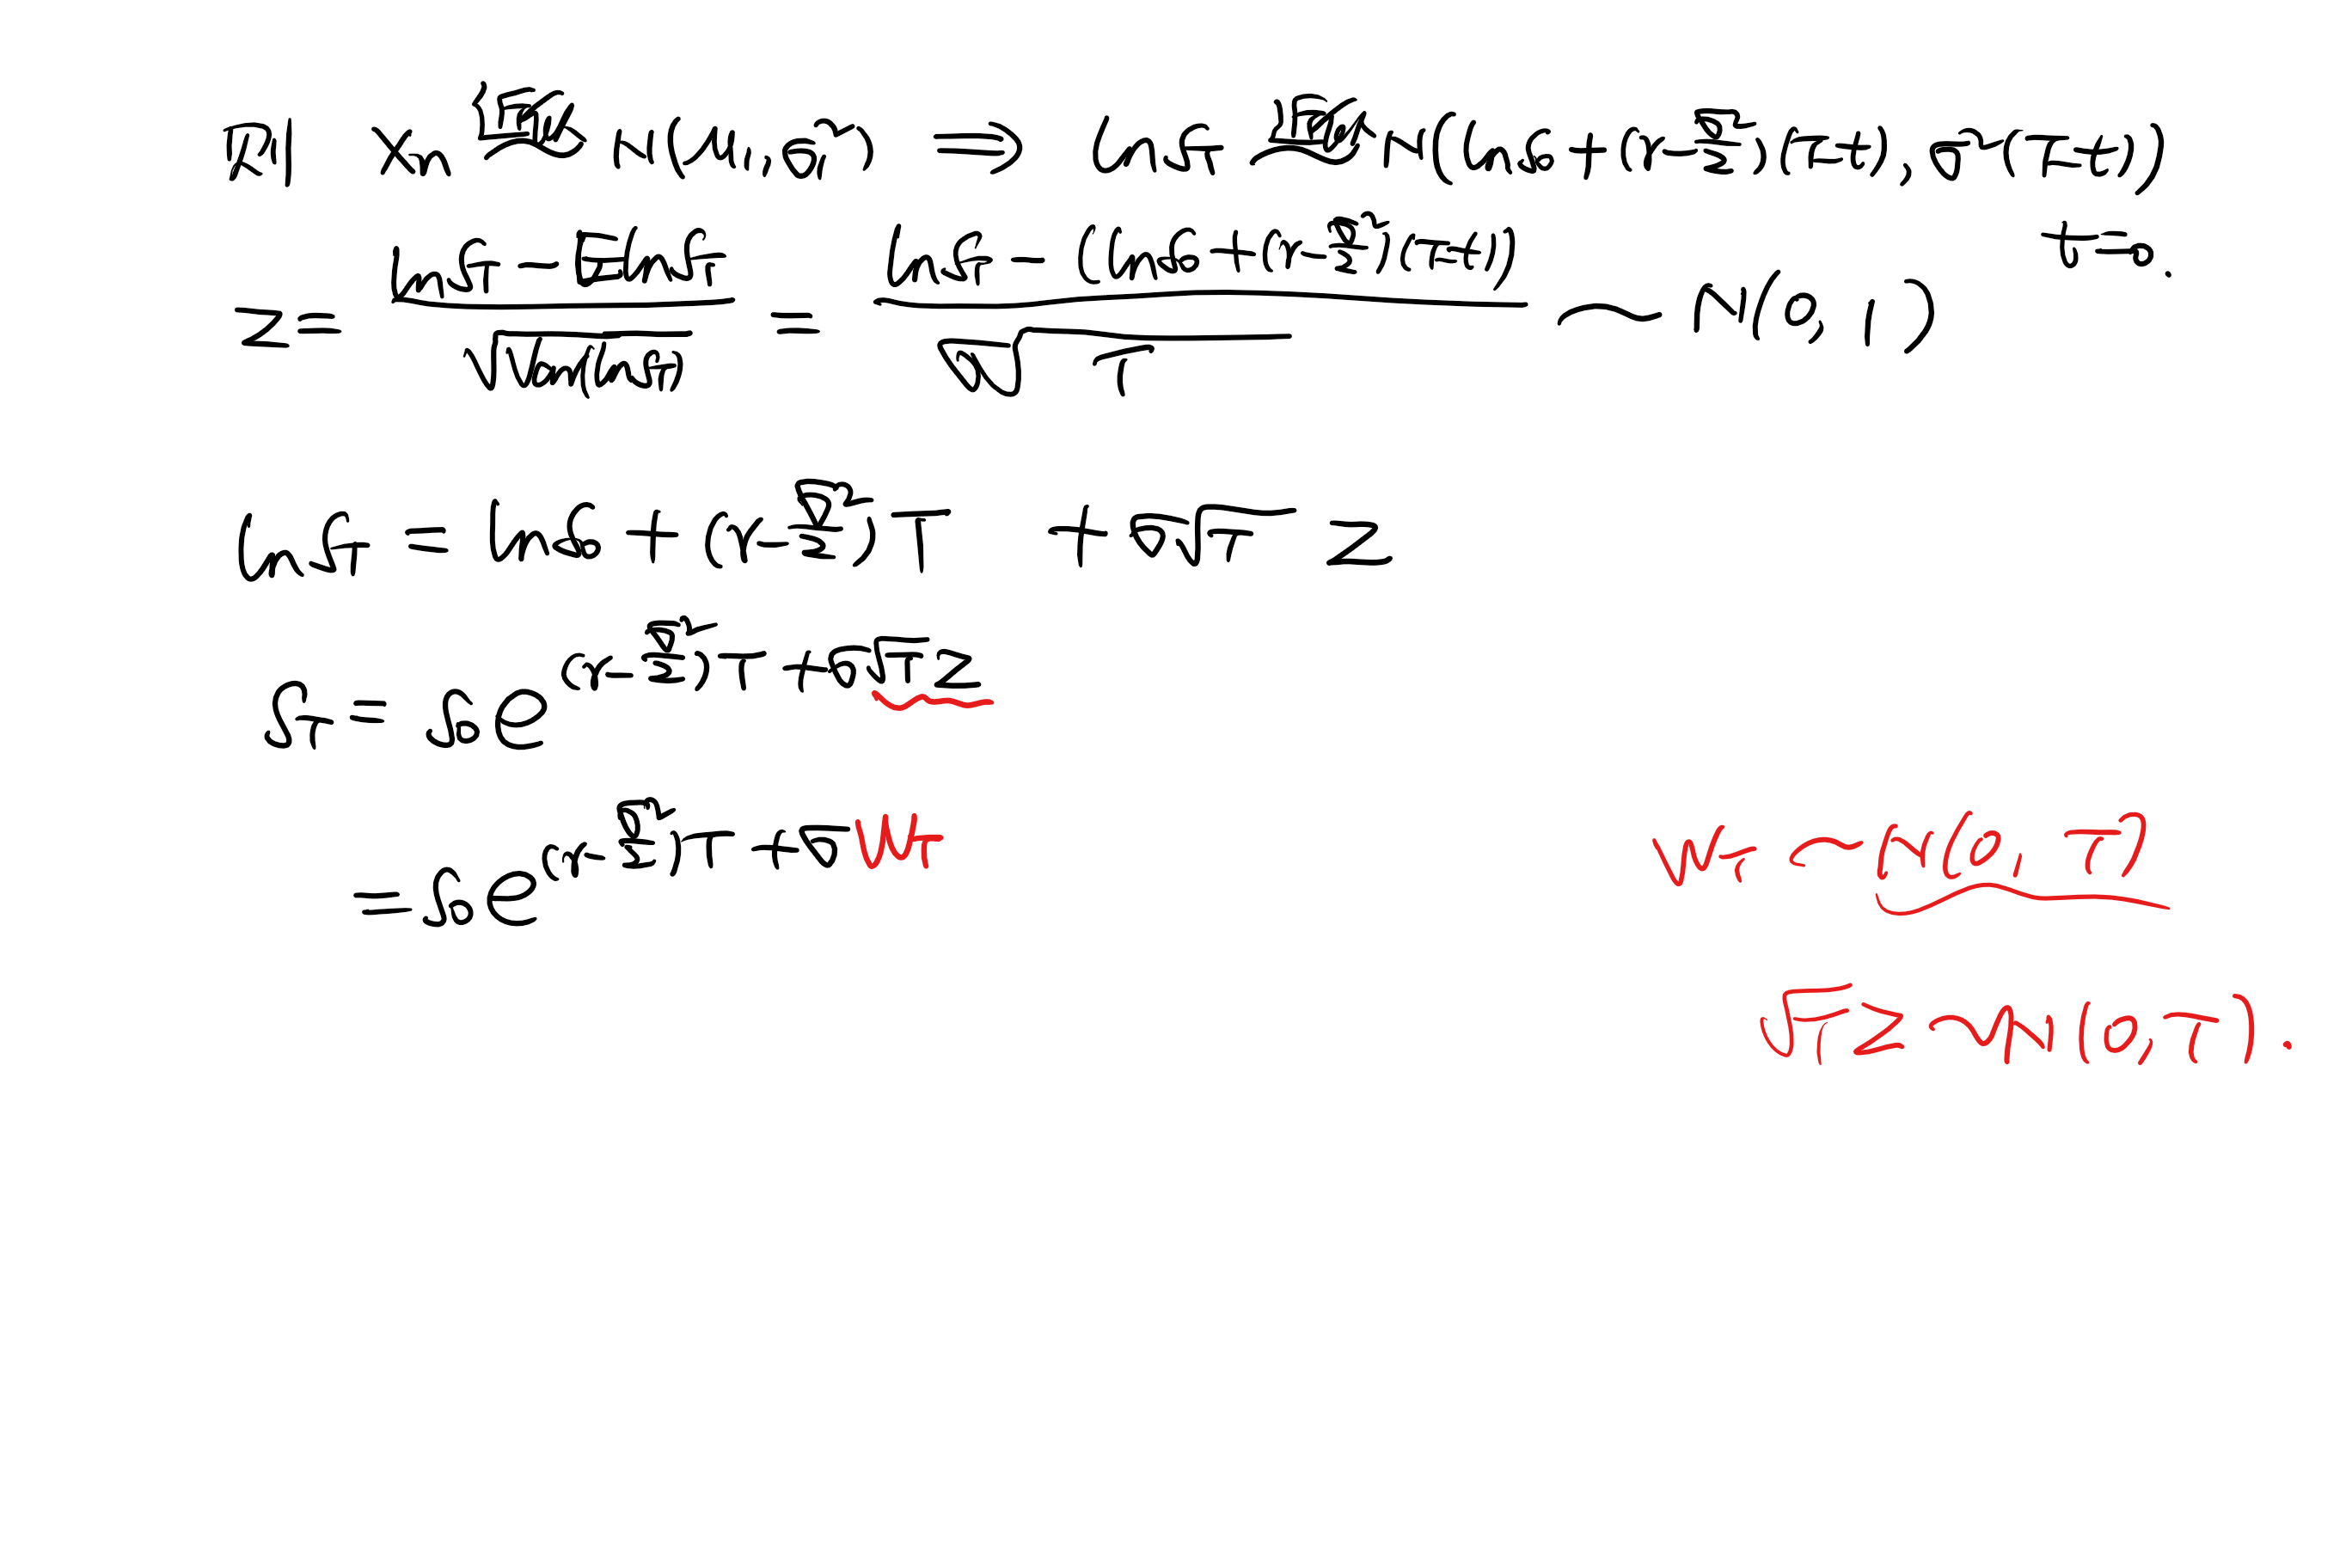 则 Xn 渐近 N(μ, σ²) ⇒ ln S_T 渐近 N(ln S_0 + (r - σ²/2)(T-t), σ²(T-t))
t=0.
Z = (ln S_T - E ln S_T) / √Var(ln S_T) = (ln S_T - (ln S_0 + (r - σ²/2)(T-t))) / σ√T ~ N(0, 1)
ln S_T = ln S_0 + (r - σ²/2)T + σ√T Z
S_T = S_0 e^{(r - σ²/2)T + σ√T Z}
= S_0 e^{(r - σ²/2)T + σW_T}
W_T ~ N(0, T)
√T Z ~ N(0, T).